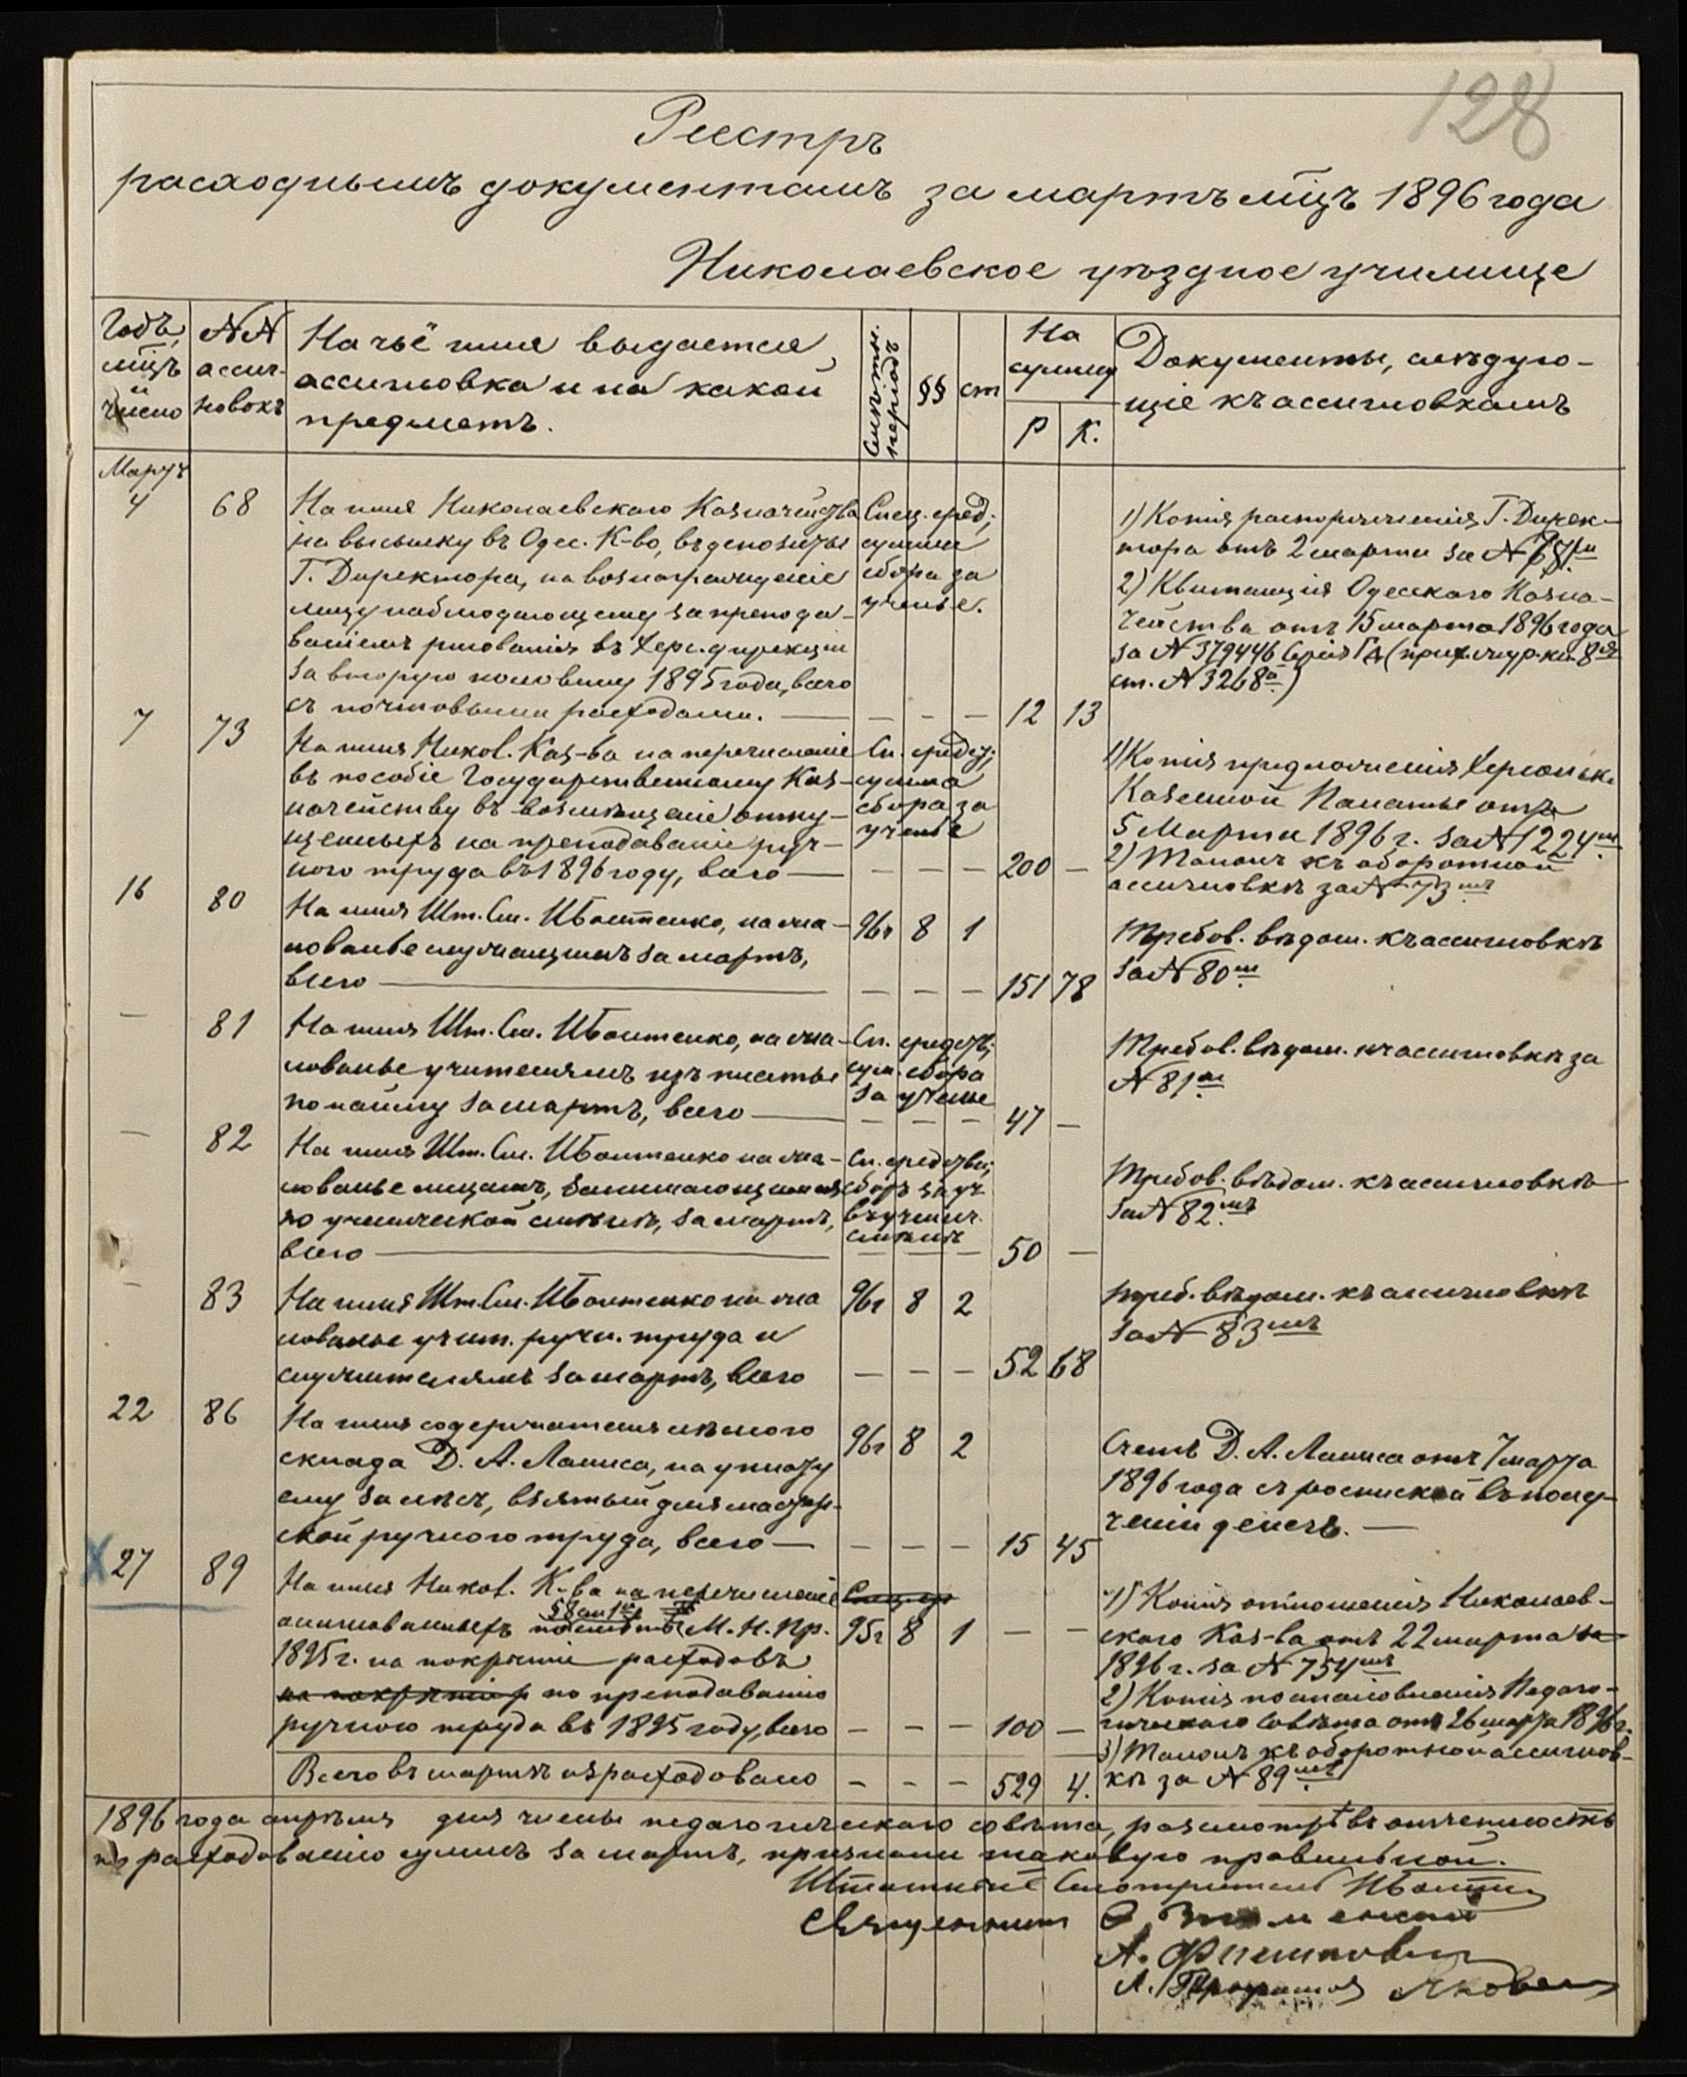 128
Реестръ
расходнымъ документамъ за мартъ мцъ 1896 года
Николаевское уѣздное училище
Годъ, мцъ и число
№№ ассигновокъ
На чьё имя выдается ассигновка и на какой предметъ.
Смѣтн. періодъ
§§
ст
На сумму
Р
К.
Документы, слѣдую-
щіе къ ассигновкамъ
Мартъ
4
68
На имя Николаевского Казначейства
на высылку въ Одес. К-во, въ депозиты
Г. Директора, на вознагражденіе
лицу наблюдающему за препода-
ваніемъ рисованія въ Херс. дирекціи
за вторую половину 1895 года, всего
съ почтовыми расходами. — — — —
Спец. сред;
суммы
сбора за
ученье.
12 13
1) Копія распоряженія Г. Дирек-
тора отъ 2 марта за №
2) Квитанція Одесского Казна-
чейства отъ 15 марта 1896 года
за № 379446 Серія (прих. жур. кн. 8
ст. № 3268)
7
73
На имя Никол. Каз-ва на перечисленіе
въ пособіе Государственному Каз-
начейству въ возмѣщеніе отпу-
щенныхъ на преподаваніе руч-
ного труда въ 1896 году, всего — — — —
Сп. средст;
сумма
сбора за
ученье
200 —
1) Копія предложенія Херсонск.
Казенной Палаты отъ
5 Марта 1896 г. за № 1224
2) Талонъ къ оборотной
ассигновкѣ за № 73
16
80
На имя Шт. См. Ивантенко, на жа-
лованье служащимъ за мартъ,
всего — — — —
96г 8 1
151 78
Требов. вѣдом. къ ассигновкѣ
за № 80
—
81
На имя Шт. См. Ивантенко, на жа-
лованье учителямъ изъ платы
по найму за мартъ, всего — — — —
Сп. средств;
сум. сбора
за ученье
47 —
Требов. вѣдом. къ ассигновкѣ за
№ 81
—
82
На имя Шт. См. Ивантенко на жа-
лованье лицамъ, занимающимся
по ученической смѣнѣ, за мартъ,
всего — — — —
Сп. средства;
сборъ за уч.
50 —
Требов. вѣдом. къ ассигновкѣ
за № 82
—
83
На имя Шт. См. Ивантенко на жа
лованье учит. ручн. труда и
служителямъ за мартъ, всего
96г 8 2
— — — 52 68
Треб. вѣдом. къ ассигновкѣ
за № 83
22
86
На имя содержателя лѣсного
склада Д. А. Лаписа, на уплату
ему за лѣсъ, взятый для мастер-
ской ручного труда, всего — — — —
96г 8 2
15 45
Счетъ Д. А. Лаписа отъ 7 марта
1896 года съ роспиской въ полу-
ченіи денегъ. —
27
89
На имя Никол. К-ва на перечисленіе
ассигнованныхъ по смѣтѣ М. Н. Пр.
§8 ст 1
1895 г. на покрытіе расходовъ
на покрытіе по преподаванію
ручного труда въ 1895 году, всего — — —
95г 8 1 — —
100 —
1) Копія отношенія Николаев-
ского Каз-ва отъ 22 марта за
1896 г. за № 754
2) Копія постановленія Педаго-
гического Совѣта отъ 26 марта 1896 г.
3) Талонъ къ оборотной ассигнов-
кѣ за № 89
Всего въ мартѣ израсходовано — — — 529 4.
1896 года апрѣля дня члены педагогического совѣта, разсмотрѣвъ отчетность
по расходованію суммъ за мартъ, признали таковую правильной.
Штатный Смотритель
Священникъ